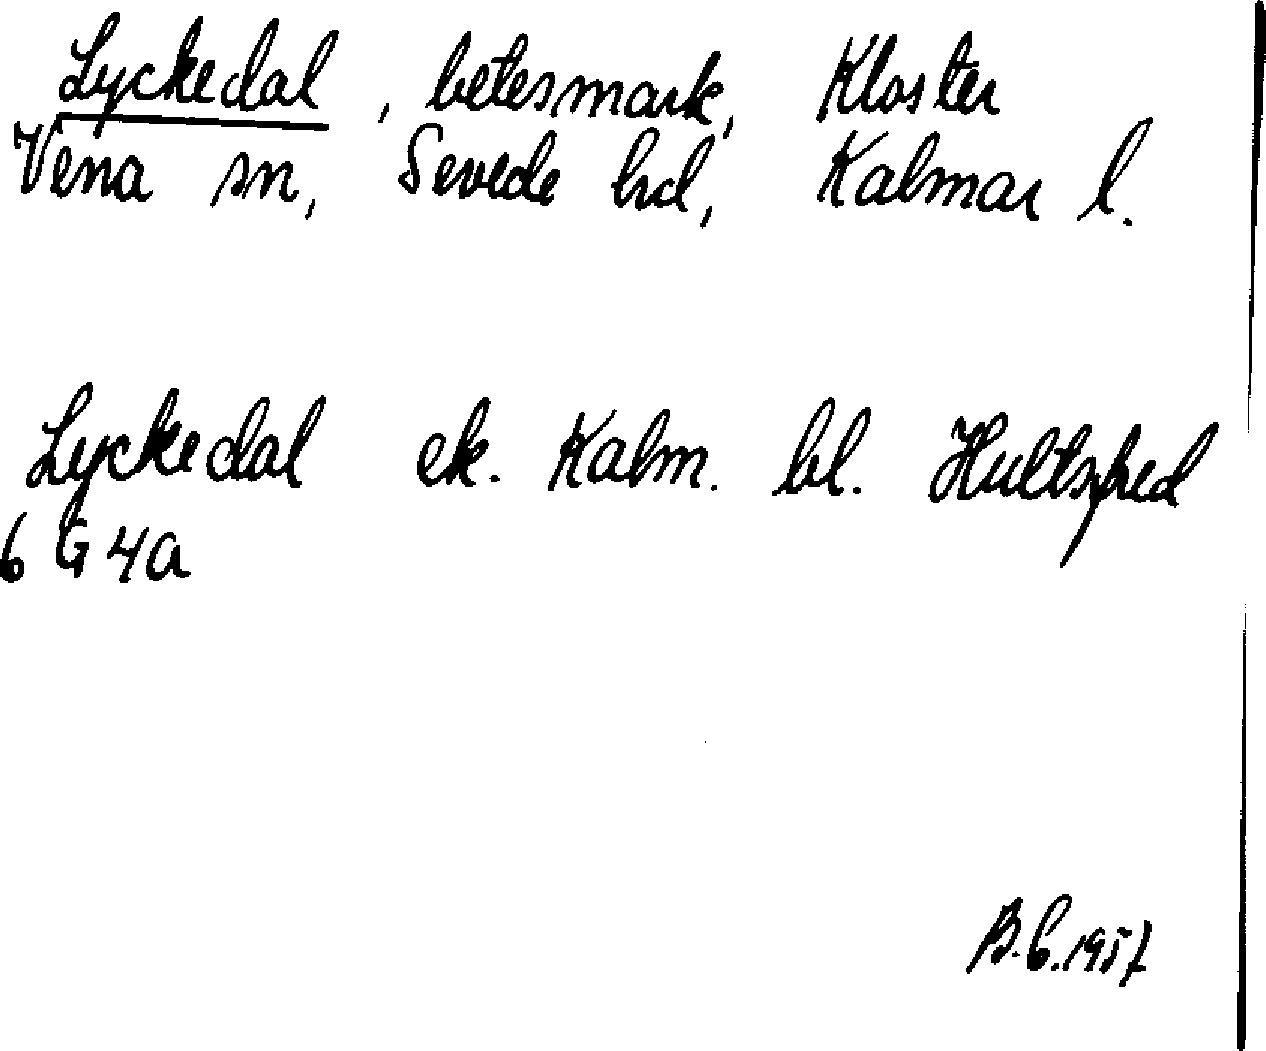 Lyckedal, betesmark, Kloster
Vena sn, Sevede hd, Kalmar l.
Lyckedal ek. Kalm. bl. Hultsfred
6 G 4a
B.C.1957